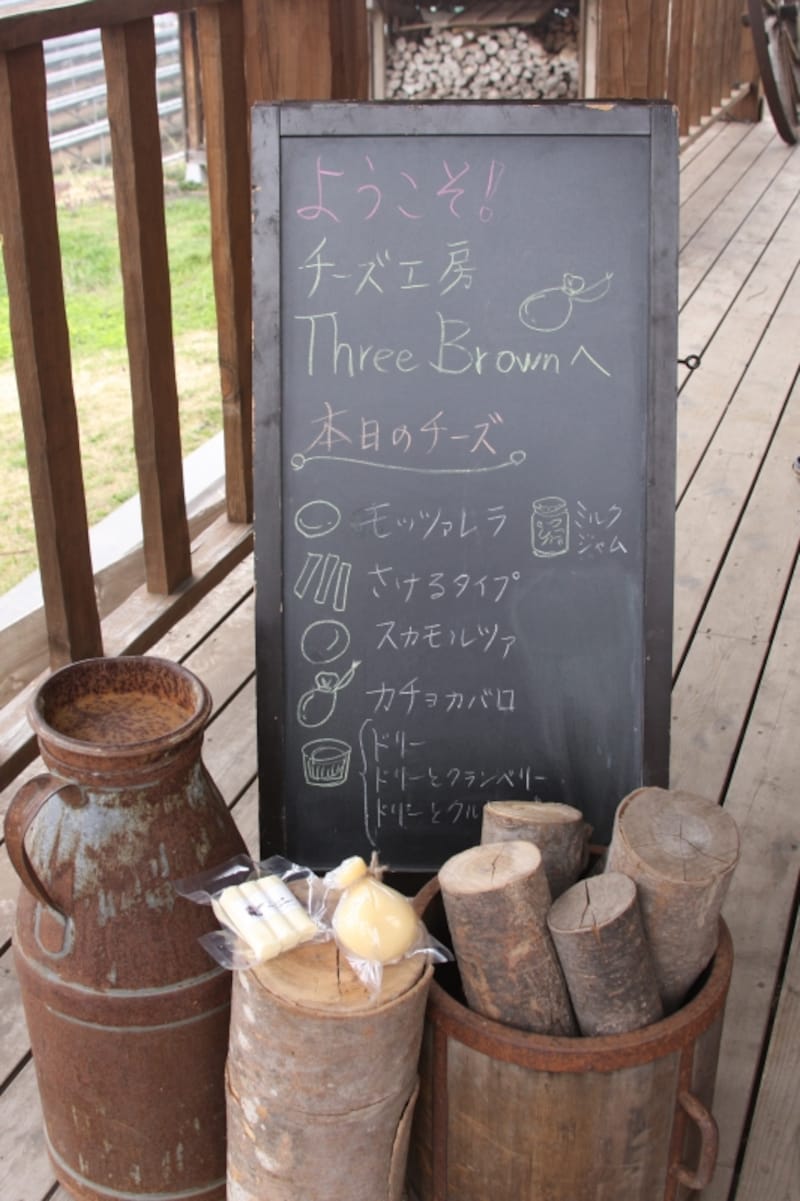 ようこそ!
チーズ工房
Three Brownへ
本日のチーズ
モッツァレラ
さけるタイプ
スカモルツァ
カチョカバロ
ドリー
ドリーとクランベリー
ドリーとクル
ミルク
ジャム